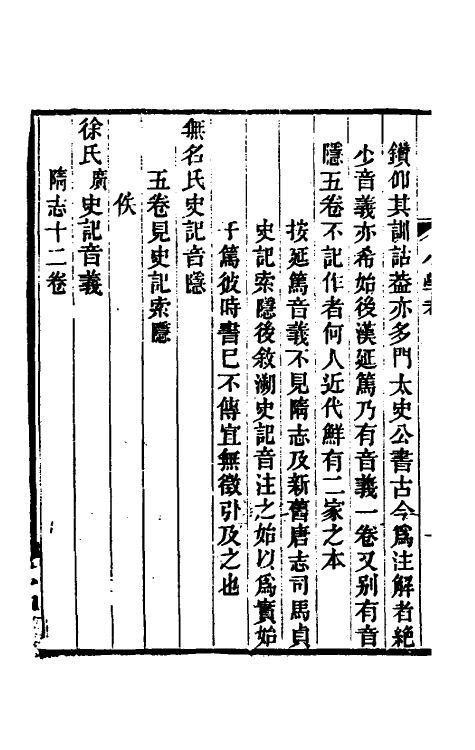 鑽仰其訓詁葢亦多門太史公書古今爲注解者絶
少音義亦希始後漢延篤乃有音義一卷又別有音
隱五卷不記作者何人近代鮮有二家之本
按延篤音義不見隋志及新舊唐志司馬貞
史記索隱後敘溯史記音注之始以爲實始
于篤彼時書巳不傳宜無徵引及之也
無名氏史記音隱
五卷見史記索隱
佚
徐氏廣史記音義
隋志十二卷